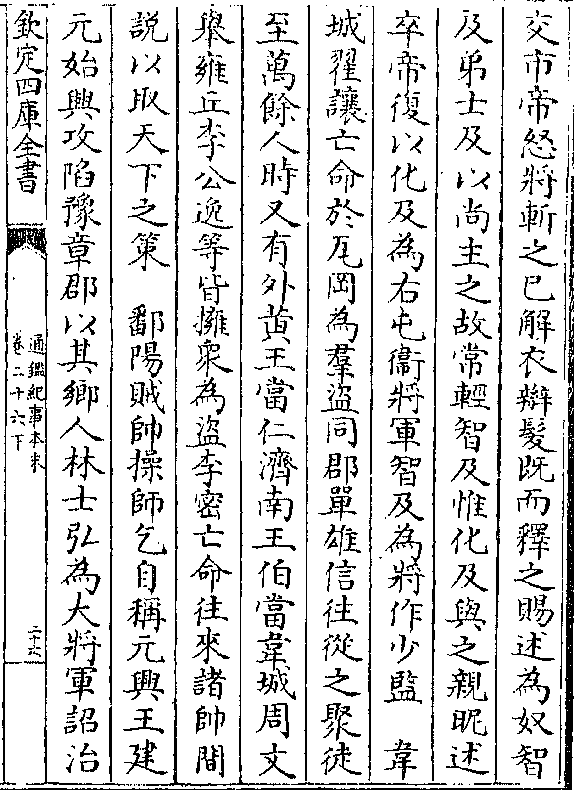 交市帝怒將斬之已解衣辮髮既而釋之賜述為奴智
及弟士及以尚主之故常輕智及惟化及與之親昵述
卒帝復以化及為右屯衞將軍智及為將作少監　韋
城翟讓亡命於瓦岡為羣盜同郡單雄信往從之聚徒
至萬餘人時又有外黄王當仁濟南王伯當韋城周文
舉雍丘李公逸等皆擁衆為盜李密亡命往來諸帥間
説以取天下之策　鄱陽賊帥操師乞自稱元興王建
元始興攻陷豫章郡以其鄉人林士弘為大將軍詔治
欽定四庫全書
通鑑紀事本末
卷二十六下
二十六